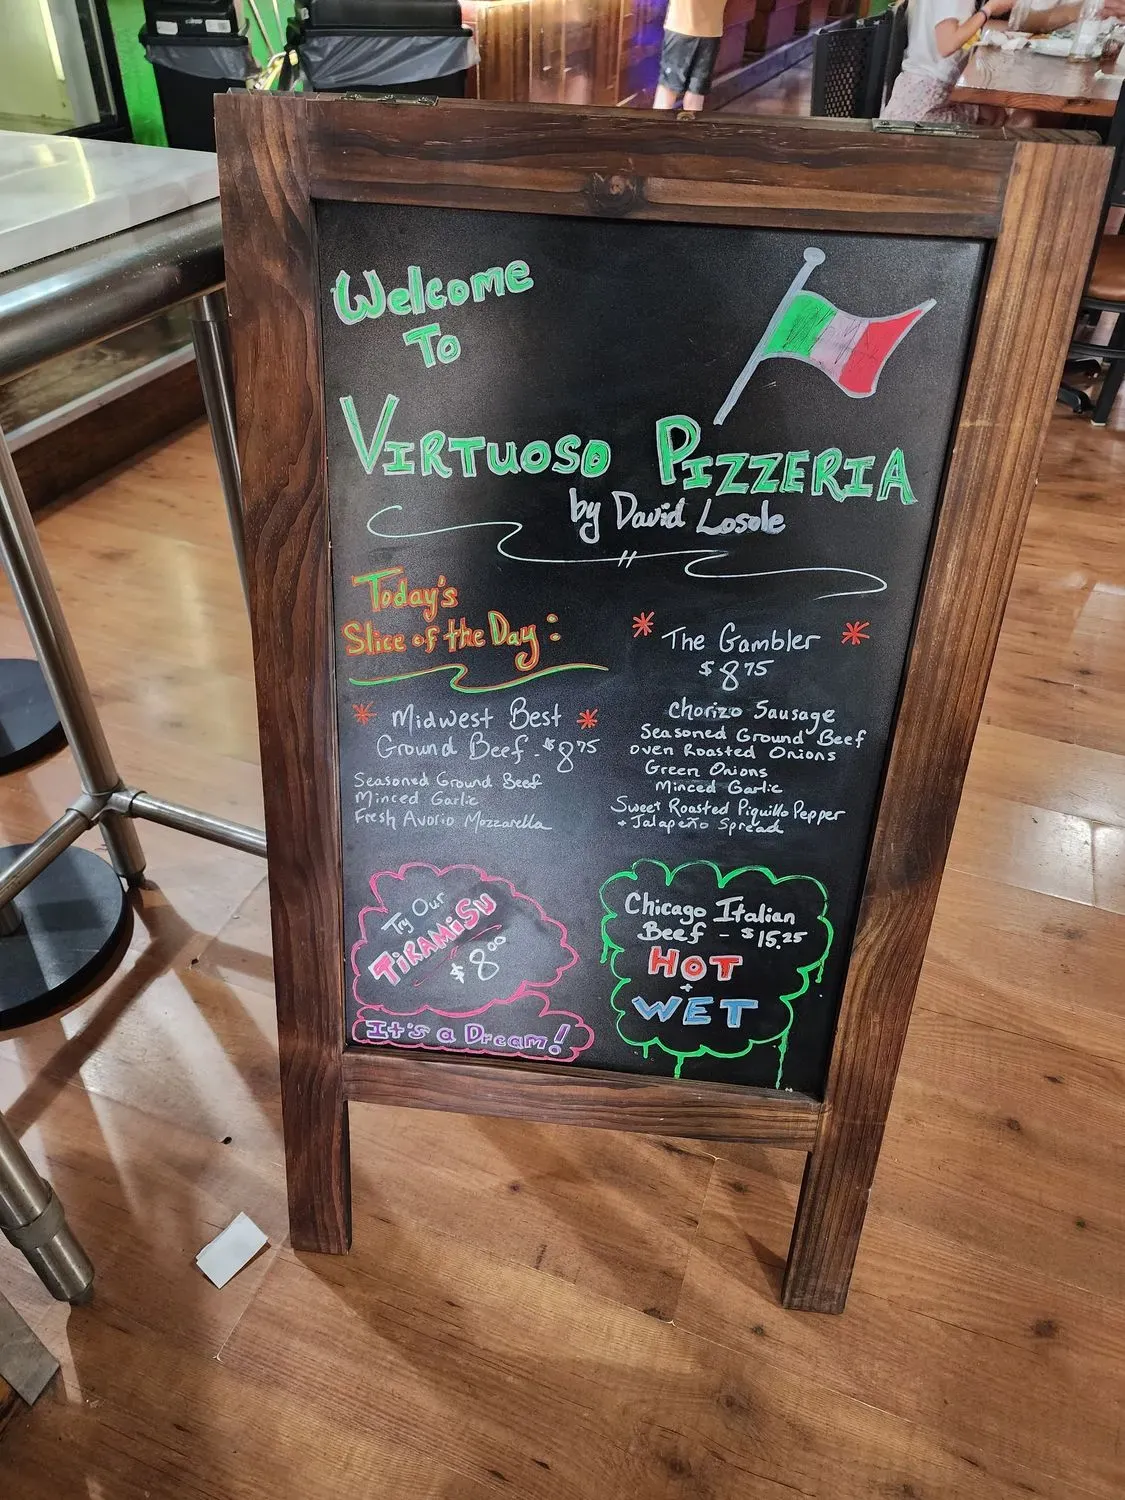 Welcome
To
VIRTUOSO PIZZERIA
by David Losole
Today's
Slice of the Day:
* Midwest Best *
Ground Beef - $8.75
Seasoned Ground Beef
Minced Garlic
Fresh Avorio Mozzarella
* The Gambler *
$8.75
Chorizo Sausage
Seasoned Ground Beef
Oven Roasted Onions
Green Onions
Minced Garlic
Sweet Roasted Piquillo Pepper
+ Jalapeño Spread
Try Our
TIRAMISU
$8.00
It's a Dream!
Chicago Italian
Beef - $15.25
HOT
+
WET